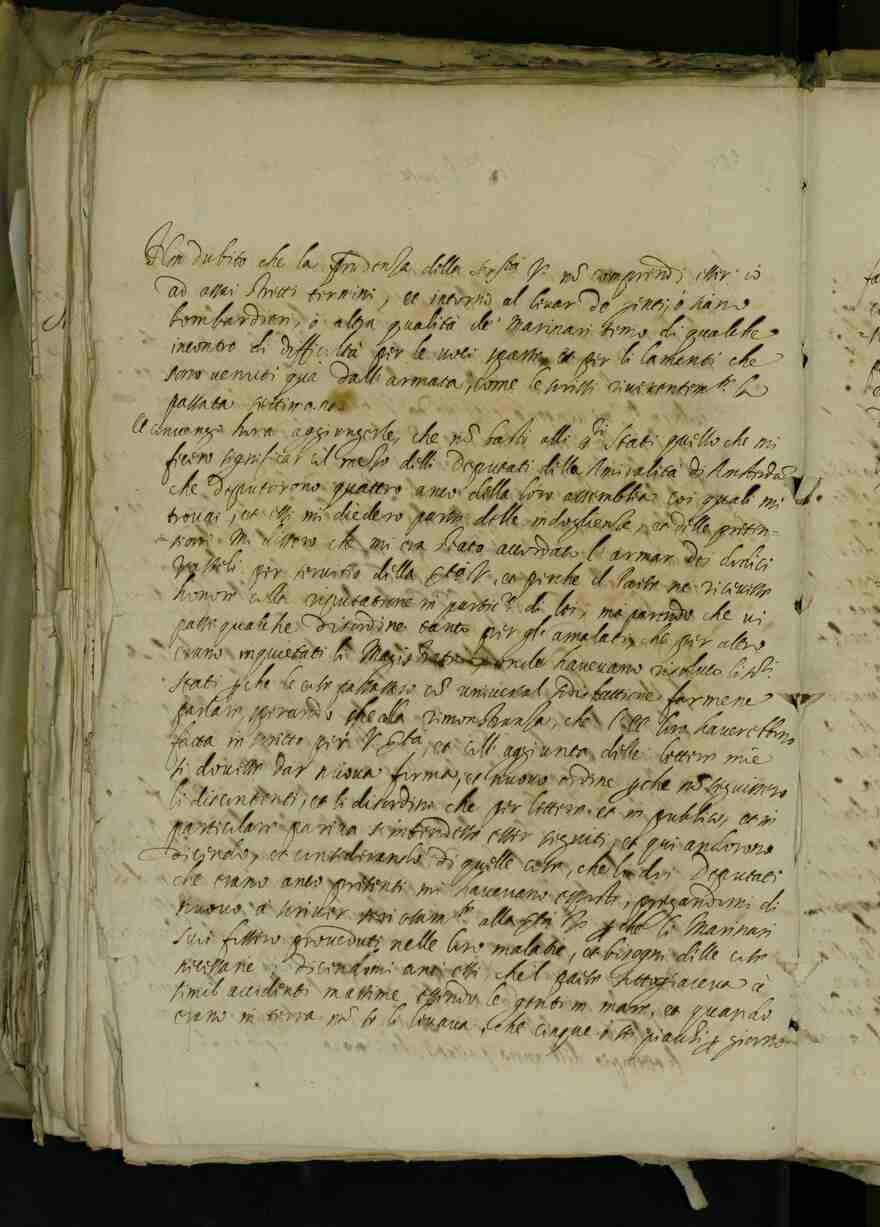 Non dubito che la prudenza della Ser.tà V. nõ comprendi esser io
ad assai stretti termini, et intorno al levar de genti, ò siano
bombardieri, ò altra qualità de' Marinari temo di qualche
incontro di difficultà per le voci sparse, et per li lamenti che
sono venuti quà dall'armata, come le scrissi riverentem.te la
passata settimana.
Mi convengo hora aggiungerle, che nõ bastò alli S.ri Stati quello che mi
fecero significar col mezo delli Deputati della Amiralità di Amsterdã
che deputorono quattro anco della loro assemblea coi quali mi
trovai, et essi mi diedero parte delle indoglienze, et delle preten-
sioni. Mi dissero che mi era stato accordato l'armar dei dodici
Vasselli per servitio della Ser.tà V., et perche il Paese ne ricevesse
honore colla riputatione in partic.re di lei, ma parendo che vi
passi qualche disordine tanto per gli amalati, che per altro
erano inquietati li Magistrati, onde havevano risoluto li S.ri
Stati perche le cose passassero cõ universal sodisfattione farmene
parlare, sperando che alla rimonstranza, che l'EE loro haverebbero
fatta in scritto per V. Ser.tà, et coll'aggiunta delle lettere mie
si dovesse dar nuova forma, et nuovo ordine perche nõ seguissero
li discontenti, et li disordini che per lettere et in publico, et in
particolare pareva s'intendesse esser seguiti, et qui andorono
dicendo, et considerando di quelle cose, che li doi Deputati
che erano anco presenti mi havevano esposto, pregandomi di
nuovo à scriver seriosam.te alla Ser.tà V. perche li Marinari
suoi fossero proveduti nelle loro malatie, et bisogni delle cose
necessarie; dicendomi anco essi, che'l paese sottogiaceva à
simil accidenti massime essendo le genti in mare, et quando
erano in terra nõ se li levava, che cinque ò sei piacchi per giorno